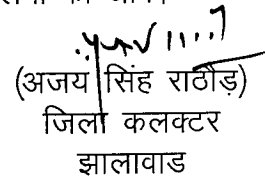 (अजय सिंह राठौड़)
जिला कलक्टर
झालावाड